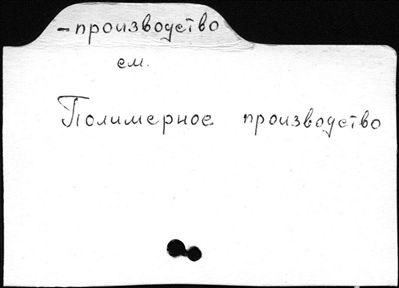 -производство
см.
Полимерное производство